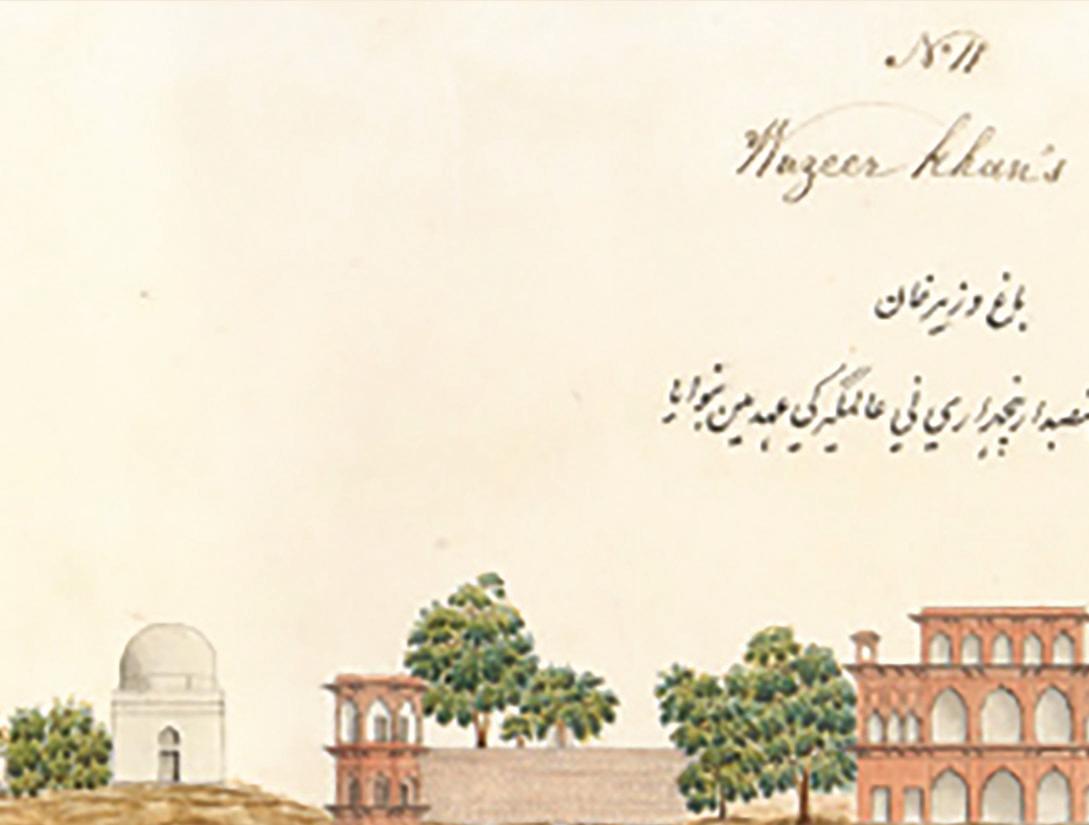 No 11
Wuzeer Khan's
باغ وزیر خان
پنجہزاري ني عالمگیر کي عہد مین بنوایا